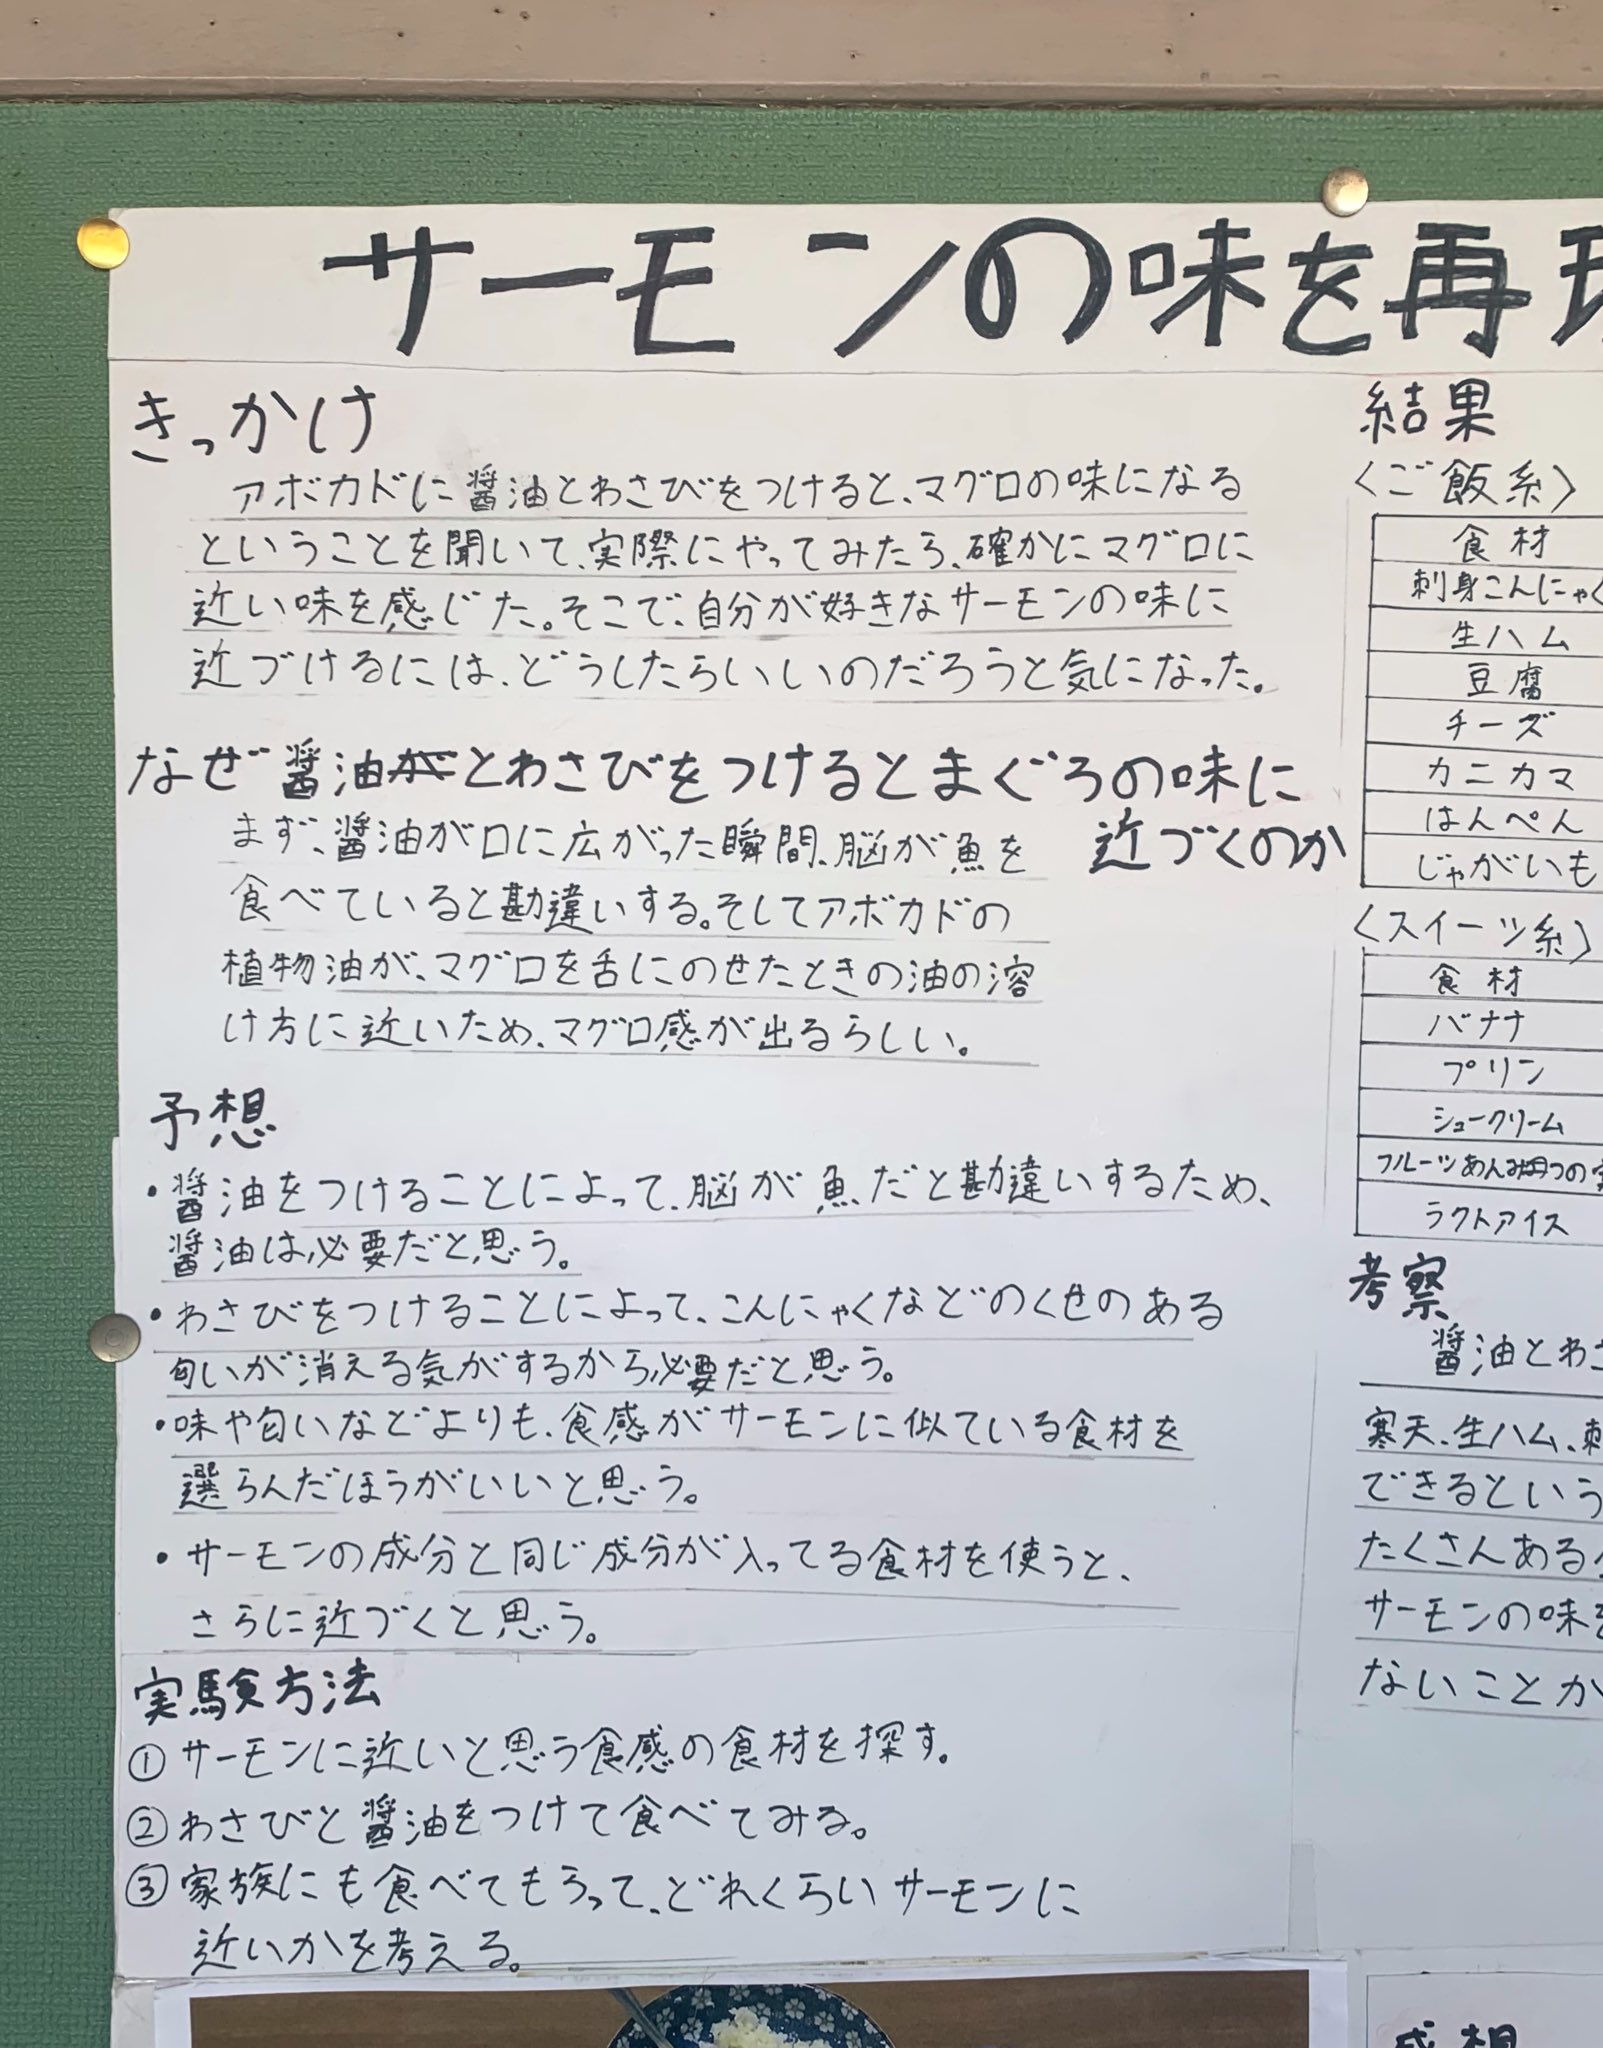 サーモンの味を再
きっかけ
アボカドに醤油とわさびをつけると、マグロの味になる
ということを聞いて、実際にやってみたら、確かにマグロに
近い味を感じた。そこで、自分が好きなサーモンの味に
近づけるには、どうしたらいいのだろうと気になった。
なぜ醤油がとわさびをつけるとまぐろの味に
近づくのか
まず、醤油が口に広がった瞬間、脳が魚を
食べていると勘違いする。そしてアボカドの
植物油が、マグロを舌にのせたときの油の溶
け方に近いため、マグロ感が出るらしい。
予想
・醤油をつけることによって、脳が魚だと勘違いするため、
醤油は必要だと思う。
・わさびをつけることによって、こんにゃくなどのくせのある
匂いが消える気がするから必要だと思う。
・味や匂いなどよりも、食感がサーモンに似ている食材を
選らんだほうがいいと思う。
・サーモンの成分と同じ成分が入ってる食材を使うと、
さらに近づくと思う。
実験方法
①サーモンに近いと思う食感の食材を探す。
②わさびと醤油をつけて食べてみる。
③家族にも食べてもらって、どれくらいサーモンに
近いかを考える。
結果
〈ご飯系〉
食材
刺身こんにゃく
生ハム
豆腐
チーズ
カニカマ
はんぺん
じゃがいも
〈スイーツ系〉
食材
バナナ
プリン
シュークリーム
フルーツあんみつの
ラクトアイス
考察
醤油とわさ
寒天、生ハム、刺
できるという
たくさんある
サーモンの味を
ないことか
感想